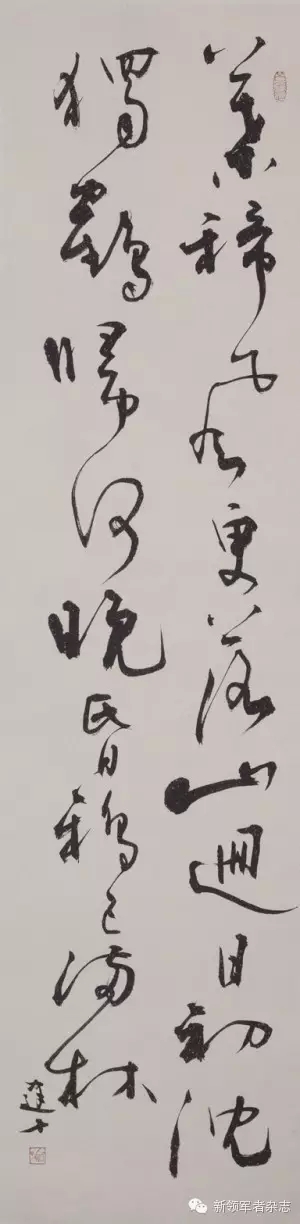 葉稀風更落山迥日初沈
獨鶴歸何晚昬鴉已滿林
新领军者杂志